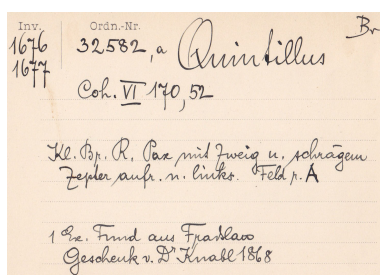 Inv. Ordn.-Nr. Br
1676 32582, a Quintillus
1677
Coh. VI 170, 52
Kl. Br. R. Pax mit Zweig u. schrägem
Zepter aufr. n. links. Feld r. A
1 Ex. Fund aus Fraßlau
Geschenk v. Dr Knabl 1868